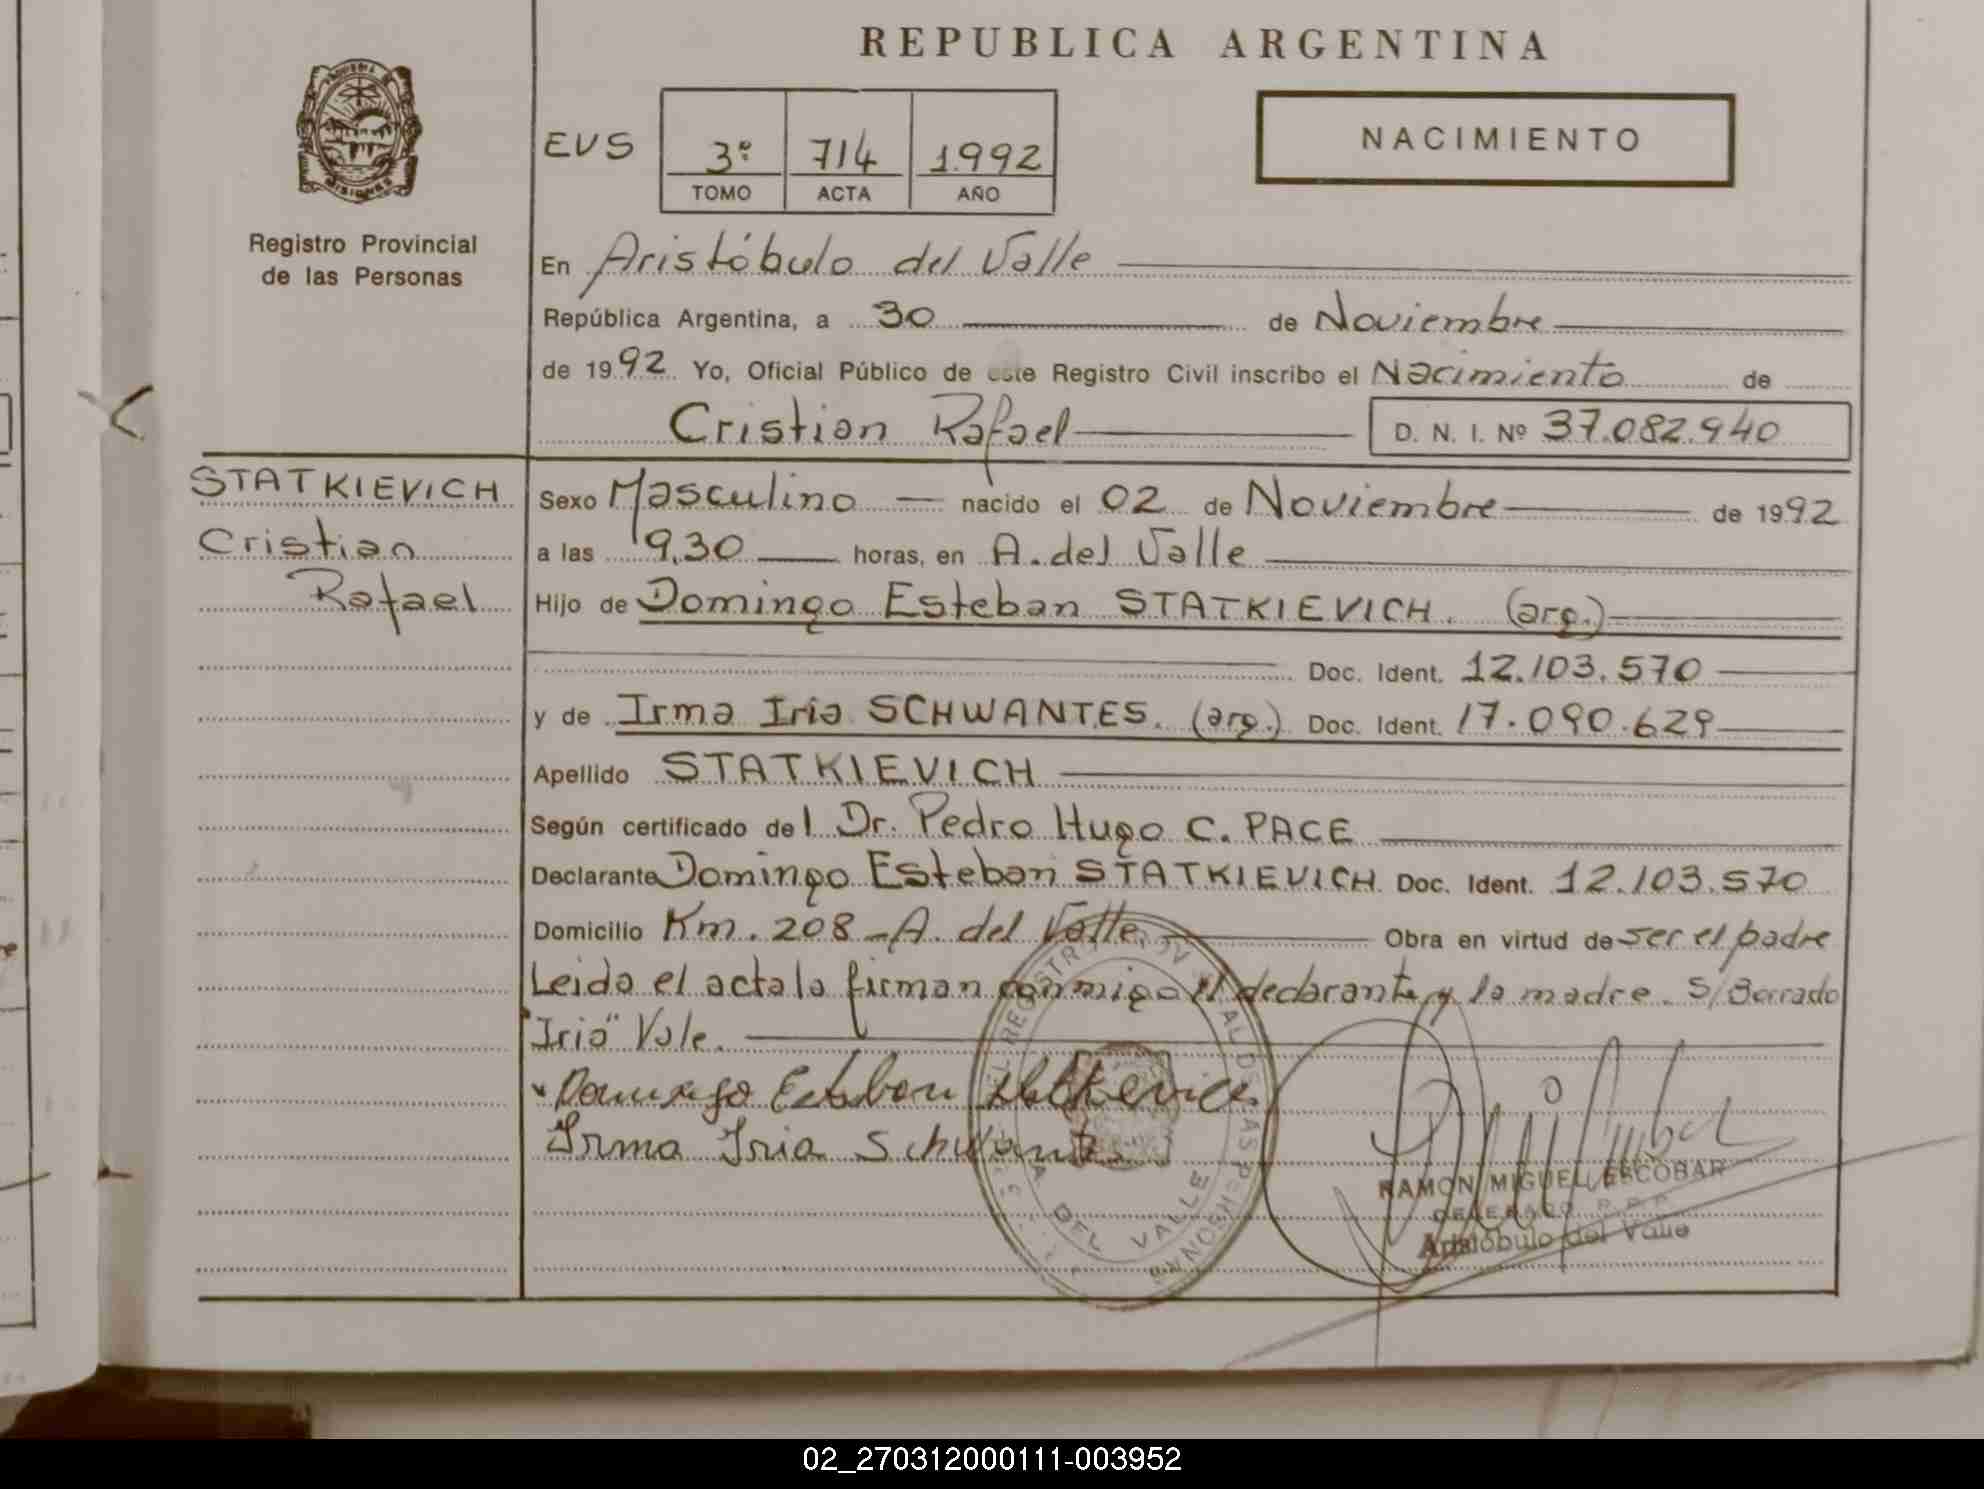 REPUBLICA ARGENTINA
NACIMIENTO
EVS
3º 714 1.992
TOMO ACTA AÑO
Registro Provincial
de las Personas
En Aristóbulo del Valle
República Argentina, a 30 de Noviembre
de 1992 Yo, Oficial Público de este Registro Civil inscribo el Nacimiento de
Cristian Rafael D. N. I. Nº 37.082.940
STATKIEVICH
Cristian
Rafael
Sexo Masculino nacido el 02 de Noviembre de 1992
a las 9,30 horas, en A. del Valle
Hijo de Domingo Esteban STATKIEVICH. (arg.)
Doc. Ident. 12.103.570
y de Irma Iria SCHWANTES. (arg.) Doc. Ident. 17.090.629
Apellido STATKIEVICH
Según certificado del Dr. Pedro Hugo C. PACE
Declarante Domingo Esteban STATKIEVICH Doc. Ident. 12.103.570
Domicilio Km. 208 - A. del Valle. Obra en virtud de ser el padre
Leida el acta la firman conmigo el declarante y la madre. S/Borrado
"Iria" Vale.
Domingo Esteban Statkievich
Irma Iria Schwantes
A DEL VALLE
RAMON MIGUEL ESCOBAR
DELEGADO R.P.P.
Aristóbulo del Valle
02_270312000111-003952